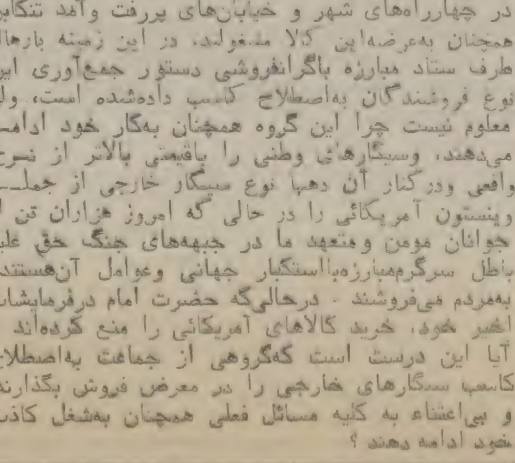 در چهارراه‌های شهر و خیابان‌های پررفت وآمد تنکابن
همچنان به‌عرضه‌این کالا مشغولند، در این زمینه بارها
طرف ستاد مبارزه باگرانفروشی دستور جمع‌آوری این
نوع فروشندگان به‌اصطلاح کاسب داده‌شده است، ولی
معلوم نیست چرا این گروه همچنان بکار خود ادامه
می‌دهند، وسیگارهای وطنی را باقیمتی بالاتر از نرخ
واقعی ودرکنار آن دهها نوع سیگار خارجی از جمله
وینستون آمریکائی را در حالی که امروز هزاران تن
جوانان مومن ومتعهد ما در جبهه‌های جنگ حق علیه
باطل سرگرم‌مبارزه‌بااستکبار جهانی وعوامل آن‌هستند
به‌مردم می‌فروشند . درحالیکه حضرت امام درفرمایشات
اخیر خود، خرید کالاهای آمریکائی را منع کرده‌اند .
آیا این درست است که‌گروهی از جماعت به‌اصطلاح
کاسب سیگارهای خارجی را در معرض فروش بگذارند
و بی‌اعتناء به کلیه مسائل فعلی همچنان به‌شغل کاذب
خود ادامه دهند ؟